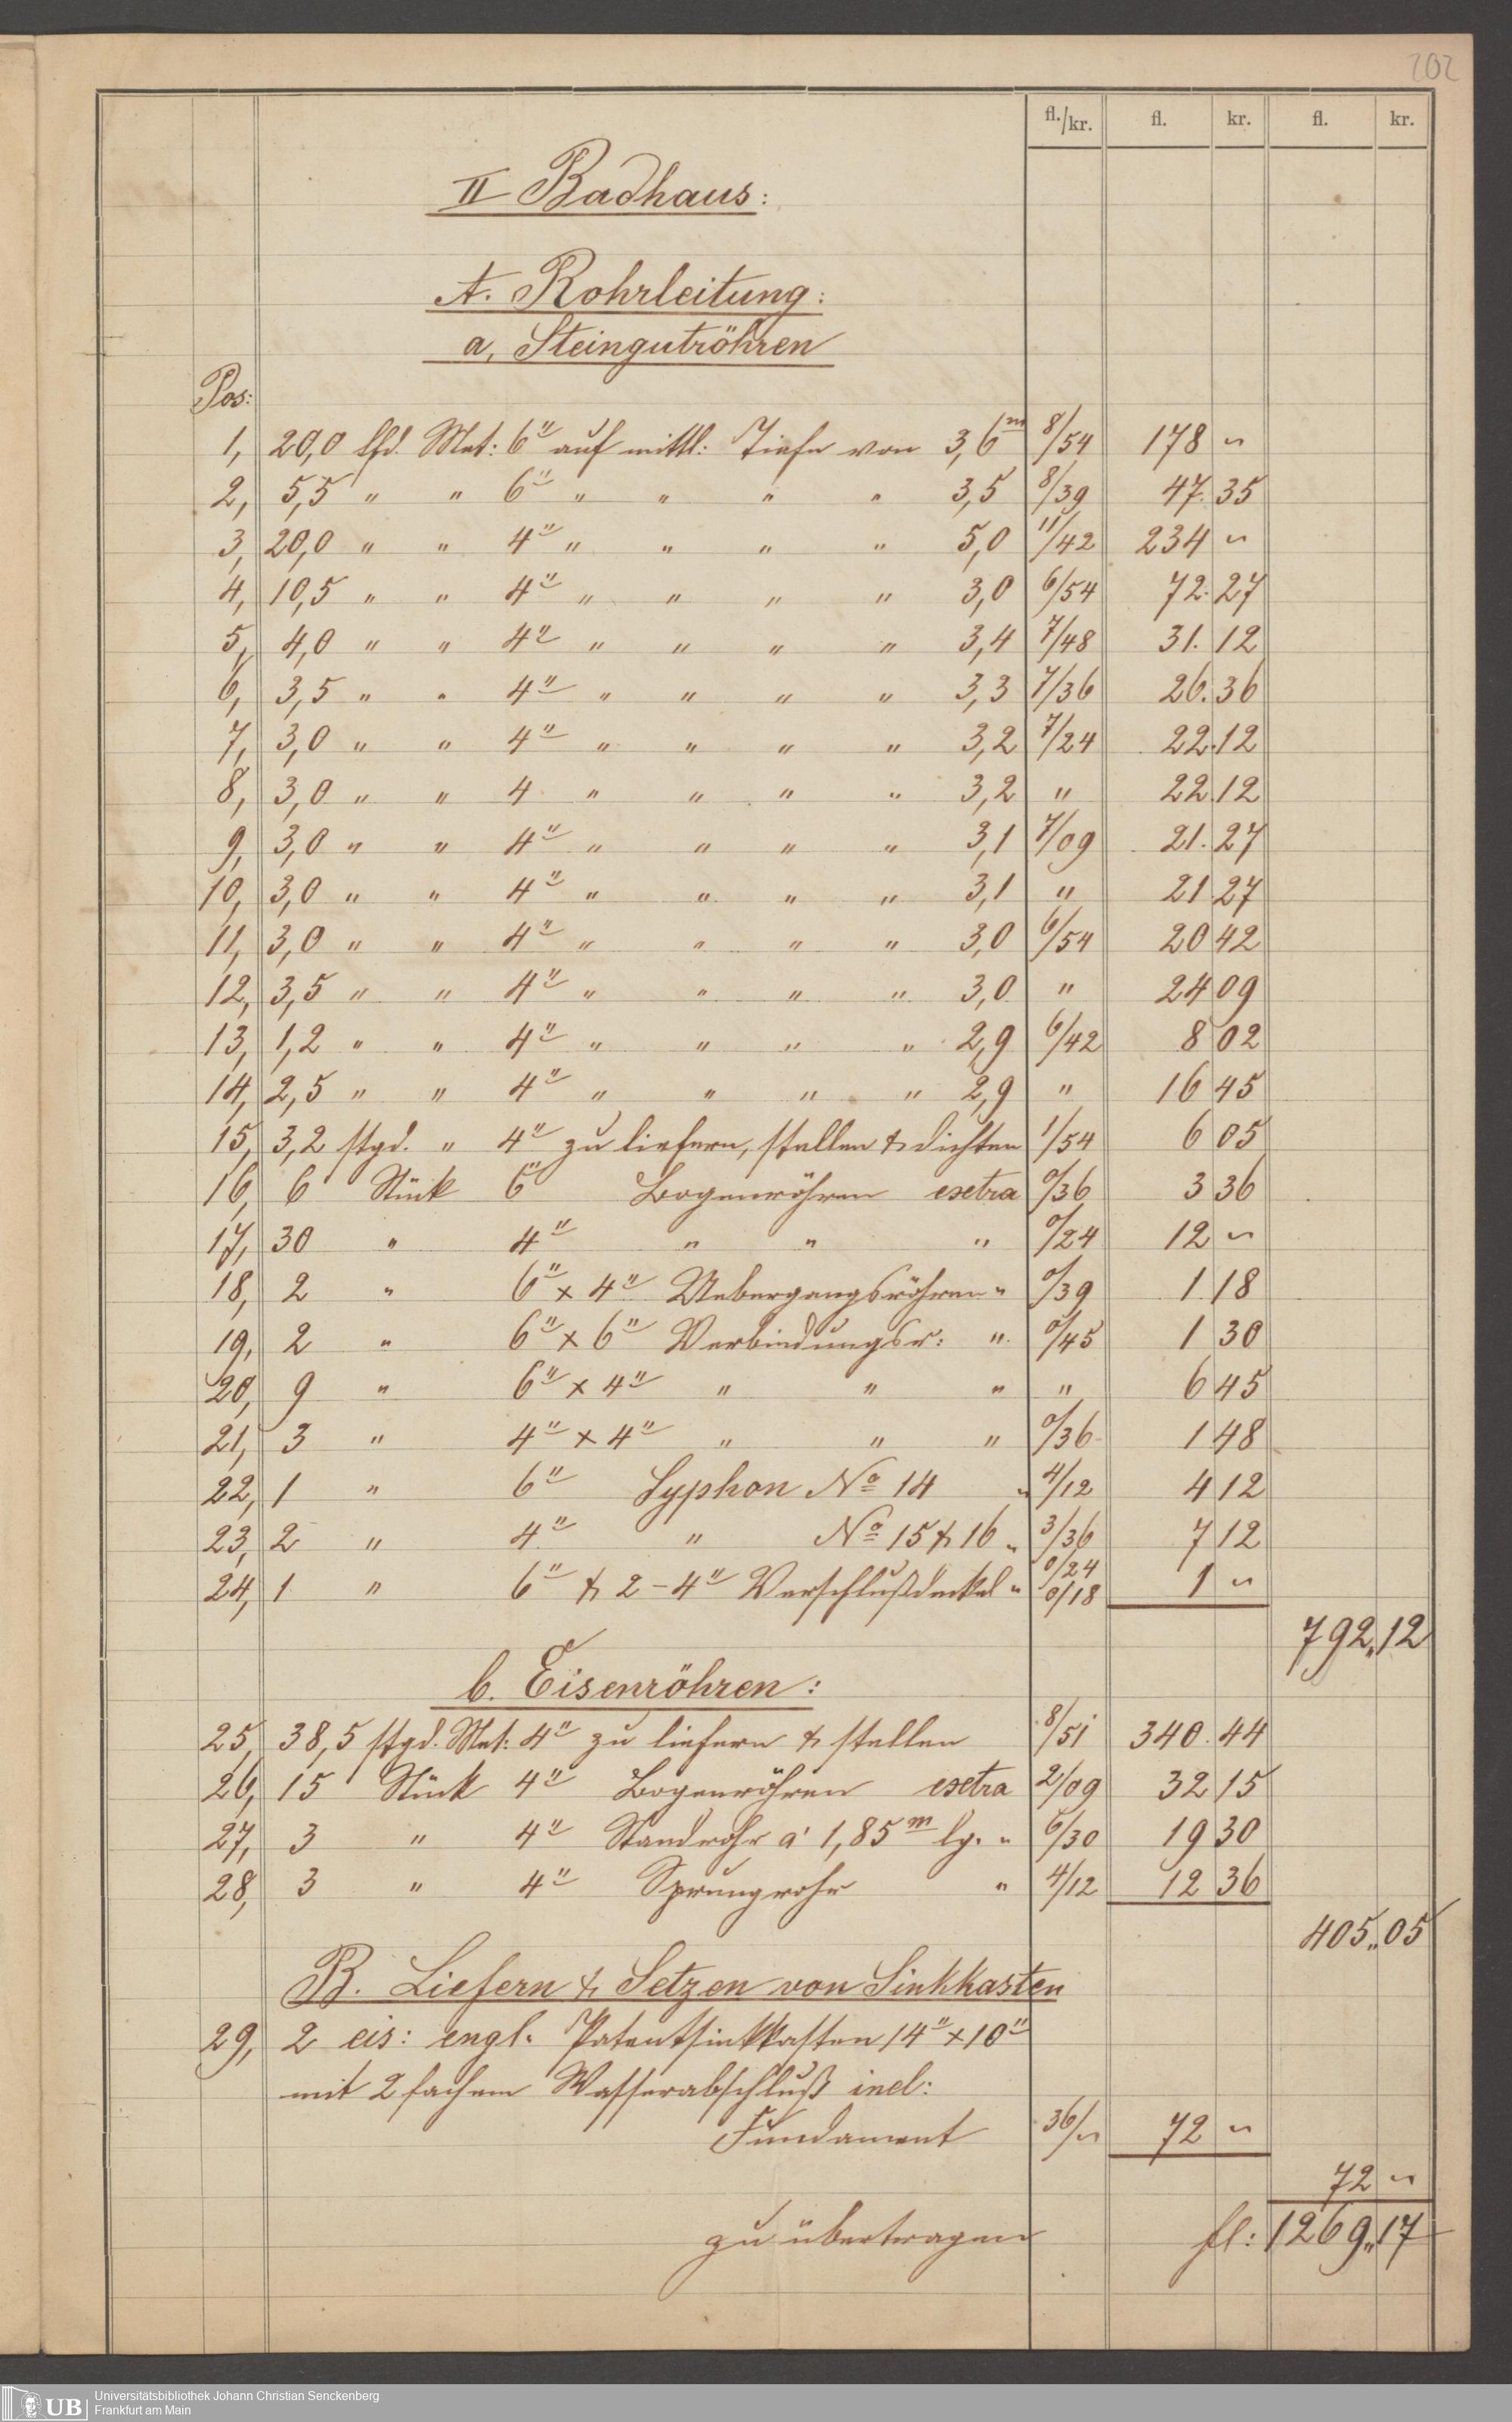 202
fl./kr. fl. kr. fl. kr.
II Badhaus:
A. Rohrleitung:
a, Steingutröhren
Pos:
1, 20,0 lfd. Met: 6" auf mittl: Tiefe von 3,6m 8/54 178 ~
2, 5,5 " " 6" " " " " 3,5 8/39 47. 35
3, 20,0 " " 4" " " " " 5,0 11/42 234 ~
4, 10,5 " " 4" " " " " 3,0 6/54 72. 27
5, 4,0 " " 4" " " " " 3,4 7/48 31. 12
6, 3,5 " " 4" " " " " 3,3 7/36 26. 36
7, 3,0 " " 4" " " " " 3,2 7/24 22. 12
8, 3,0 " " 4 " " " " 3,2 " 22. 12
9, 3,0 " " 4" " " " " 3,1 7/09 21. 27
10, 3,0 " " 4" " " " " 3,1 " 21 27
11, 3,0 " " 4" " " " " 3,0 6/54 20 42
12, 3,5 " " 4" " " " " 3,0 " 24 09
13, 1,2 " " 4" " " " " 2,9 6/42 8 02
14, 2,5 " " 4" " " " " 2,9 " 16 45
15, 3,2 stgd. " 4" zu liefern, stellen & dichten 1/54 6 05
16, 6 Stück 6" Bogenröhren exetra 0/36 3 36
17, 30 " 4" " " " 0/24 12 ~
18, 2 " 6" x 4" Uebergangsröhren " 0/39 1. 18
19, 2 " 6" x 6" Verbindungsr: " 0/45 1 30
20, 9 " 6" x 4" " " " " 6 45
21, 3 " 4" x 4" " " " 0/36 1 48
22, 1 " 6" Syphon No 14 " 4/12 4 12
23, 2 " 4" " No 15 & 16 " 3/36 7 12
24, 1 " 6" & 2 - 4" Verschlußdeckel " 0/24 0/18 1 ~
792,, 12
b. Eisenröhren:
25, 38,5 stgd. Met: 4" zu liefern & stellen 8/51 340. 44
26, 15 Stück 4" Bogenröhren exetra 2/09 32 15
27, 3 " 4" Standrohr a' 1,85m lg. " 6/30 19 30
28, 3 " 4" Sprungrohr " 4/12 12 36
405,, 05
B. Liefern & Setzen von Sinkkasten
29, 2 eis: engl. Patentsinkkasten 14" x 10"
mit 2 fachem Wasserabschluß incl:
Fundament 36/~ 72 ~
72 ~
zu übertragen fl: 1269,, 17
UB Universitätsbibliothek Johann Christian Senckenberg
Frankfurt am Main